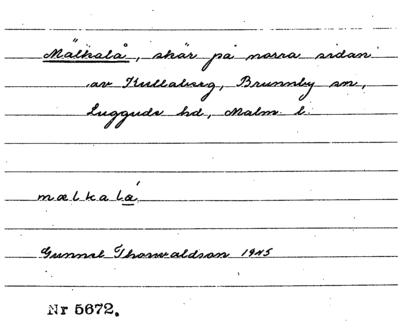 Mälkalå, skär på norra sidan
av Kullaberg, Brunnby sn,
Luggude hd, Malm. l.
mælkalá
Gunnel Thorwaldson 1945
Nr 5672.